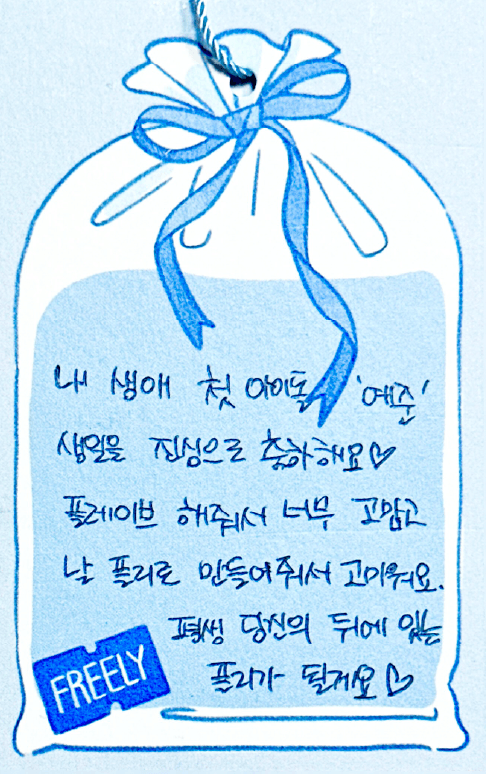 내 생애 첫 아이돌 '예준'
생일을 진심으로 축하해요♡
플레이브 해줘서 너무 고맙고
날 플리로 만들어줘서 고마워요.
평생 당신의 뒤에 있는
플리가 될게요♡
FREELY